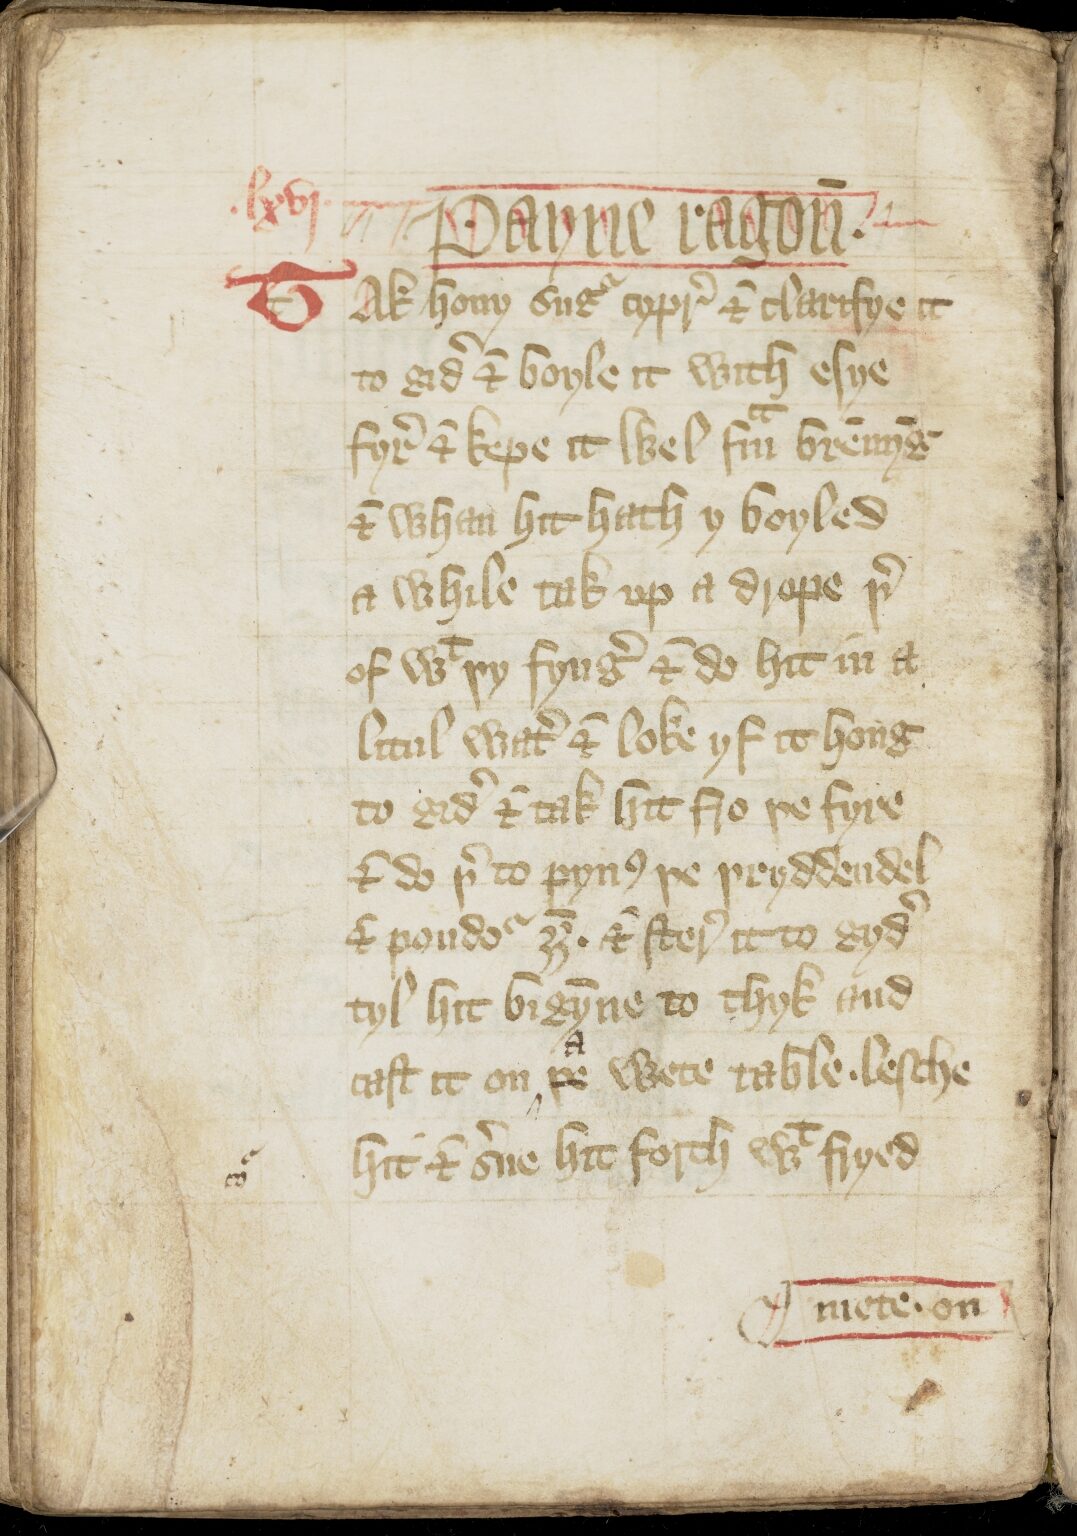 .lxvj.
Payne ragoū.
TAk hony sugᵃ cypr̛ ⁊ clarifye it
to gid̛ ⁊ boyle it with esye
fyr̛ ⁊ kepe it wel fᵗm brēnyg̅
⁊ whan hit hath y boyled
a while tak up a drope þ̛
of wᵗ þy fyng̛ ⁊ do hit in a
litul wat̛ ⁊ loke yf it hong
to gid̛ ⁊ tak hit fro þe fyre
⁊ do þ̛ to pynꝰ þe þryddendel
⁊ poudoᵃ ȝ̅ȝ̅. ⁊ ster̛ it to gyd̛
tyl hit bigȳne to thyk and
cast it on þe a wete table. lesche
hit ⁊ s̛ue hit forth wᵗ fryed
coᵃ
mete. on